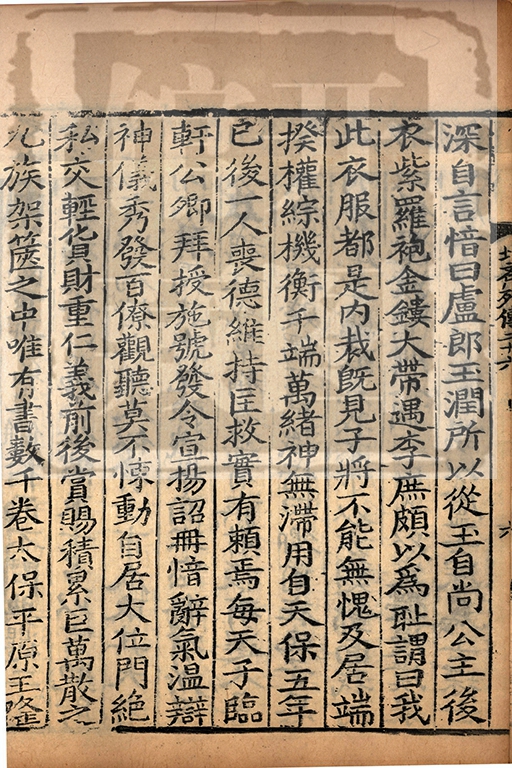 深自言愔曰盧郎玉潤所以從玉自尚公主後
衣紫羅袍金鏤大帶遇李庶頗以爲耻謂曰我
此衣服都是内裁旣見子將不能無愧及居端
揆權綜機衡千端萬緒神無滯用自天保五年
已後一人喪德維持匡救實有賴焉每天子臨
軒公卿拜授施號發令宣揚詔冊愔辭氣温辯
神儀秀發百僚觀聽莫不悚動自居大位門絶
私交輕貨財重仁義前後賞賜積累巨萬散之
九族架篋之中唯有書數千卷太保平原王隆